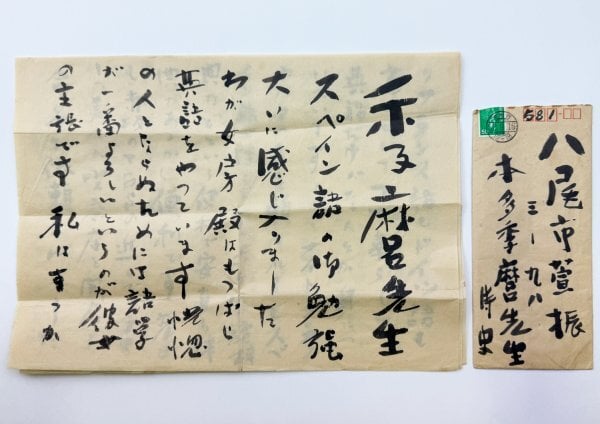 季麻呂先生
スペイン語の御勉強
大いに感じ入りました
わが女房殿はもっぱら
英語をやっています 恍惚
の人とならぬためには語学
が一番よろしいというのが彼女
の主張です 私はまつか
581
八尾市萱振
三ー九八
本多季麿先生
侍史